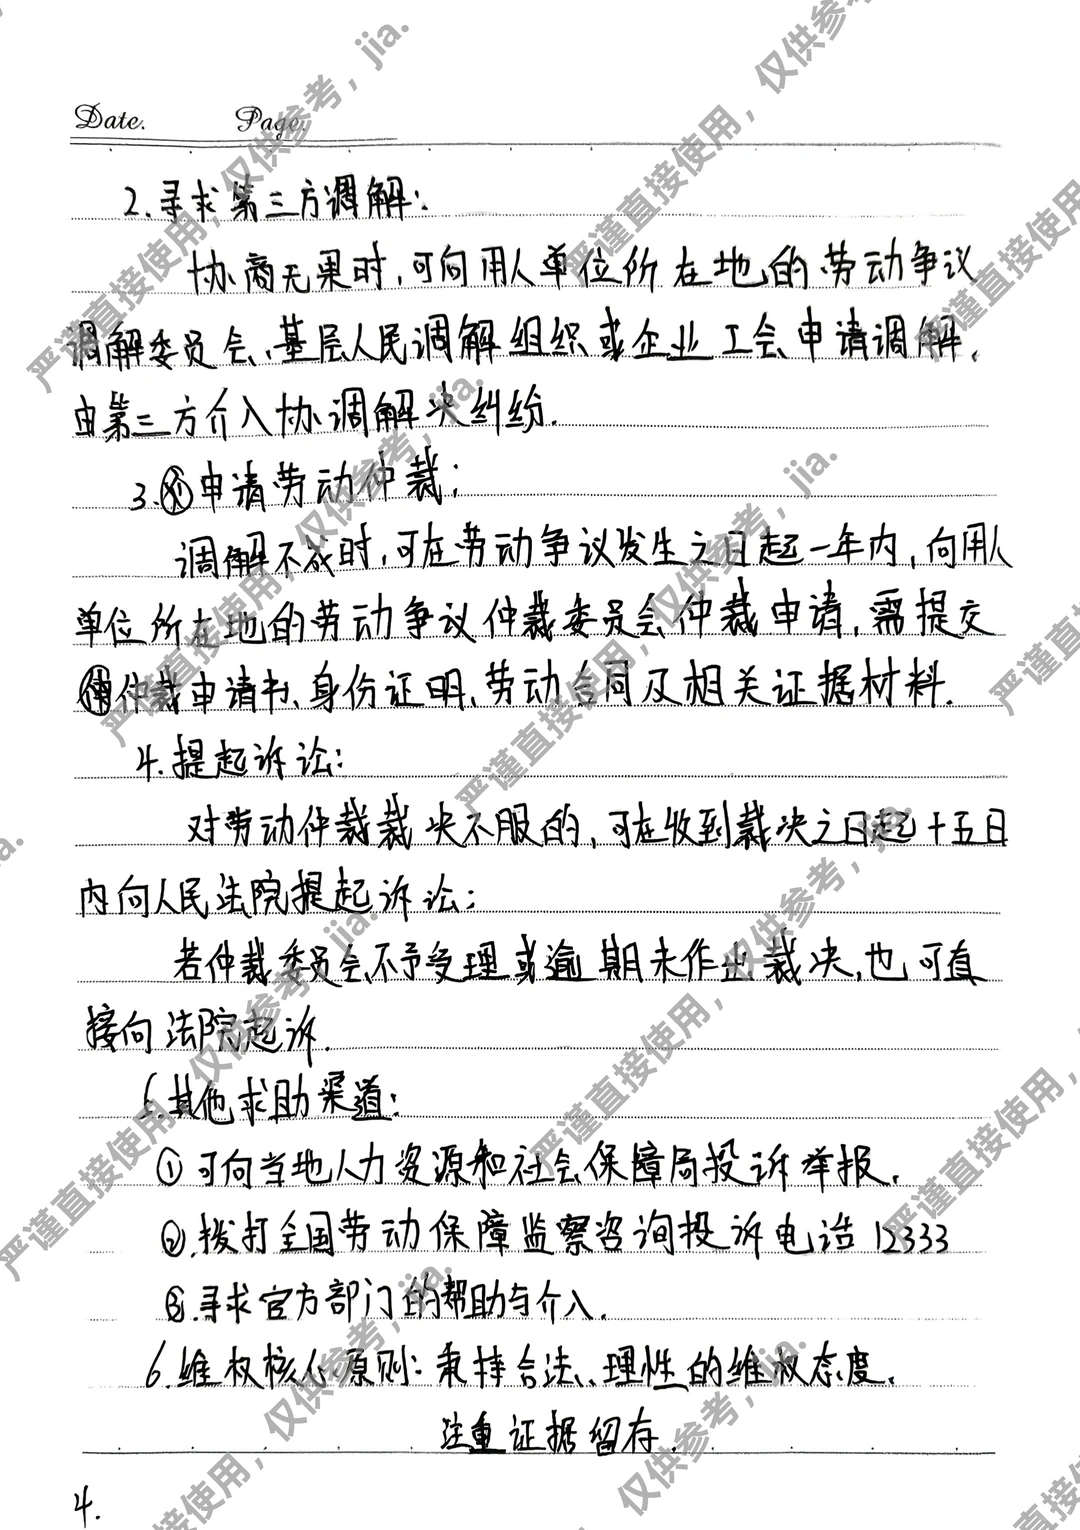 Date. Page.
2.寻求第三方调解:
协商无果时,可向用人单位所在地的劳动争议
调解委员会、基层人民调解组织或企业工会申请调解,
由第三方介入协调解决纠纷.
3.申请劳动仲裁;
调解不成时,可在劳动争议发生之日起一年内,向用人
单位所在地的劳动争议仲裁委员会仲裁申请,需提交
仲裁申请书、身份证明、劳动合同及相关证据材料.
4.提起诉讼:
对劳动仲裁裁决不服的,可在收到裁决之日起十五日
内向人民法院提起诉讼;
若仲裁委员会不予受理或逾期未作出裁决,也可直
接向法院起诉.
5.其他求助渠道:
①可向当地人力资源和社会保障局投诉举报.
②.拨打全国劳动保障监察咨询投诉电话12333
③.寻求官方部门的帮助与介入.
6.维权核心原则:秉持合法、理性的维权态度,
注重证据留存.
4.
严谨直接使用,仅供参考,jia.